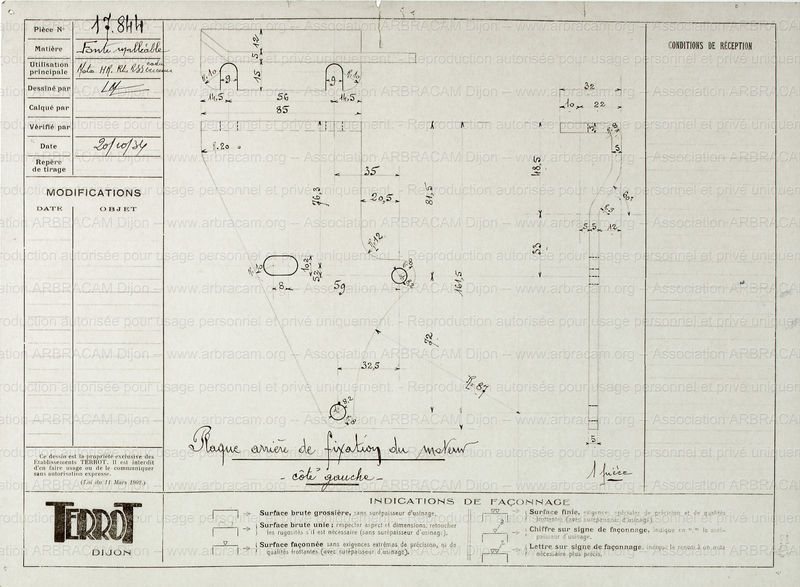 Pièce N° 17.844
Matière Fonte malléable
Utilisation principale Moto HH. RL. RSS
Dessiné par
Calqué par
Vérifié par
Date 20/10/34
Repère de tirage
MODIFICATIONS
DATE OBJET
Ce dessin est la propriété exclusive des
Etablissements TERROT. Il est interdit
d'en faire usage ou de le communiquer
sans autorisation expresse.
(Loi du 11 Mars 1902.)
TERROT
DIJON
CONDITIONS DE RÉCEPTION
5 12
15
R. 10
9
9
R. 10
14,5 56 14,5
85
R. 20
35
20,5
76,3
81,5
161,5
R. 12
8
59
72
32,5
8,2
R. 87
32
10 22
48,5
5 5 12
33
5
Plaque arrière de fixation du moteur
- côté gauche -
1 pièce
INDICATIONS DE FAÇONNAGE
Surface brute grossière, sans surépaisseur d'usinage.
Surface brute unie ; respecter aspect et dimensions, retoucher
les rugosités s'il est nécessaire (sans surépaisseur d'usinage).
Surface façonnée sans exigences extrêmes de précision, ni de
qualités frottantes (avec surépaisseur d'usinage).
Surface finie, exigences spéciales de précision et de qualités
frottantes (avec surépaisseur d'usinage).
Chiffre sur signe de façonnage, indique en
paisseur d'usinage.
Lettre sur signe de façonnage, indique le renvoi à un nota
nécessaire plus précis.
www.arbracam.org – Association ARBRACAM Dijon – www.arbracam.org – Association ARBRACAM Dijon
Reproduction autorisée pour usage personnel et privé uniquement.